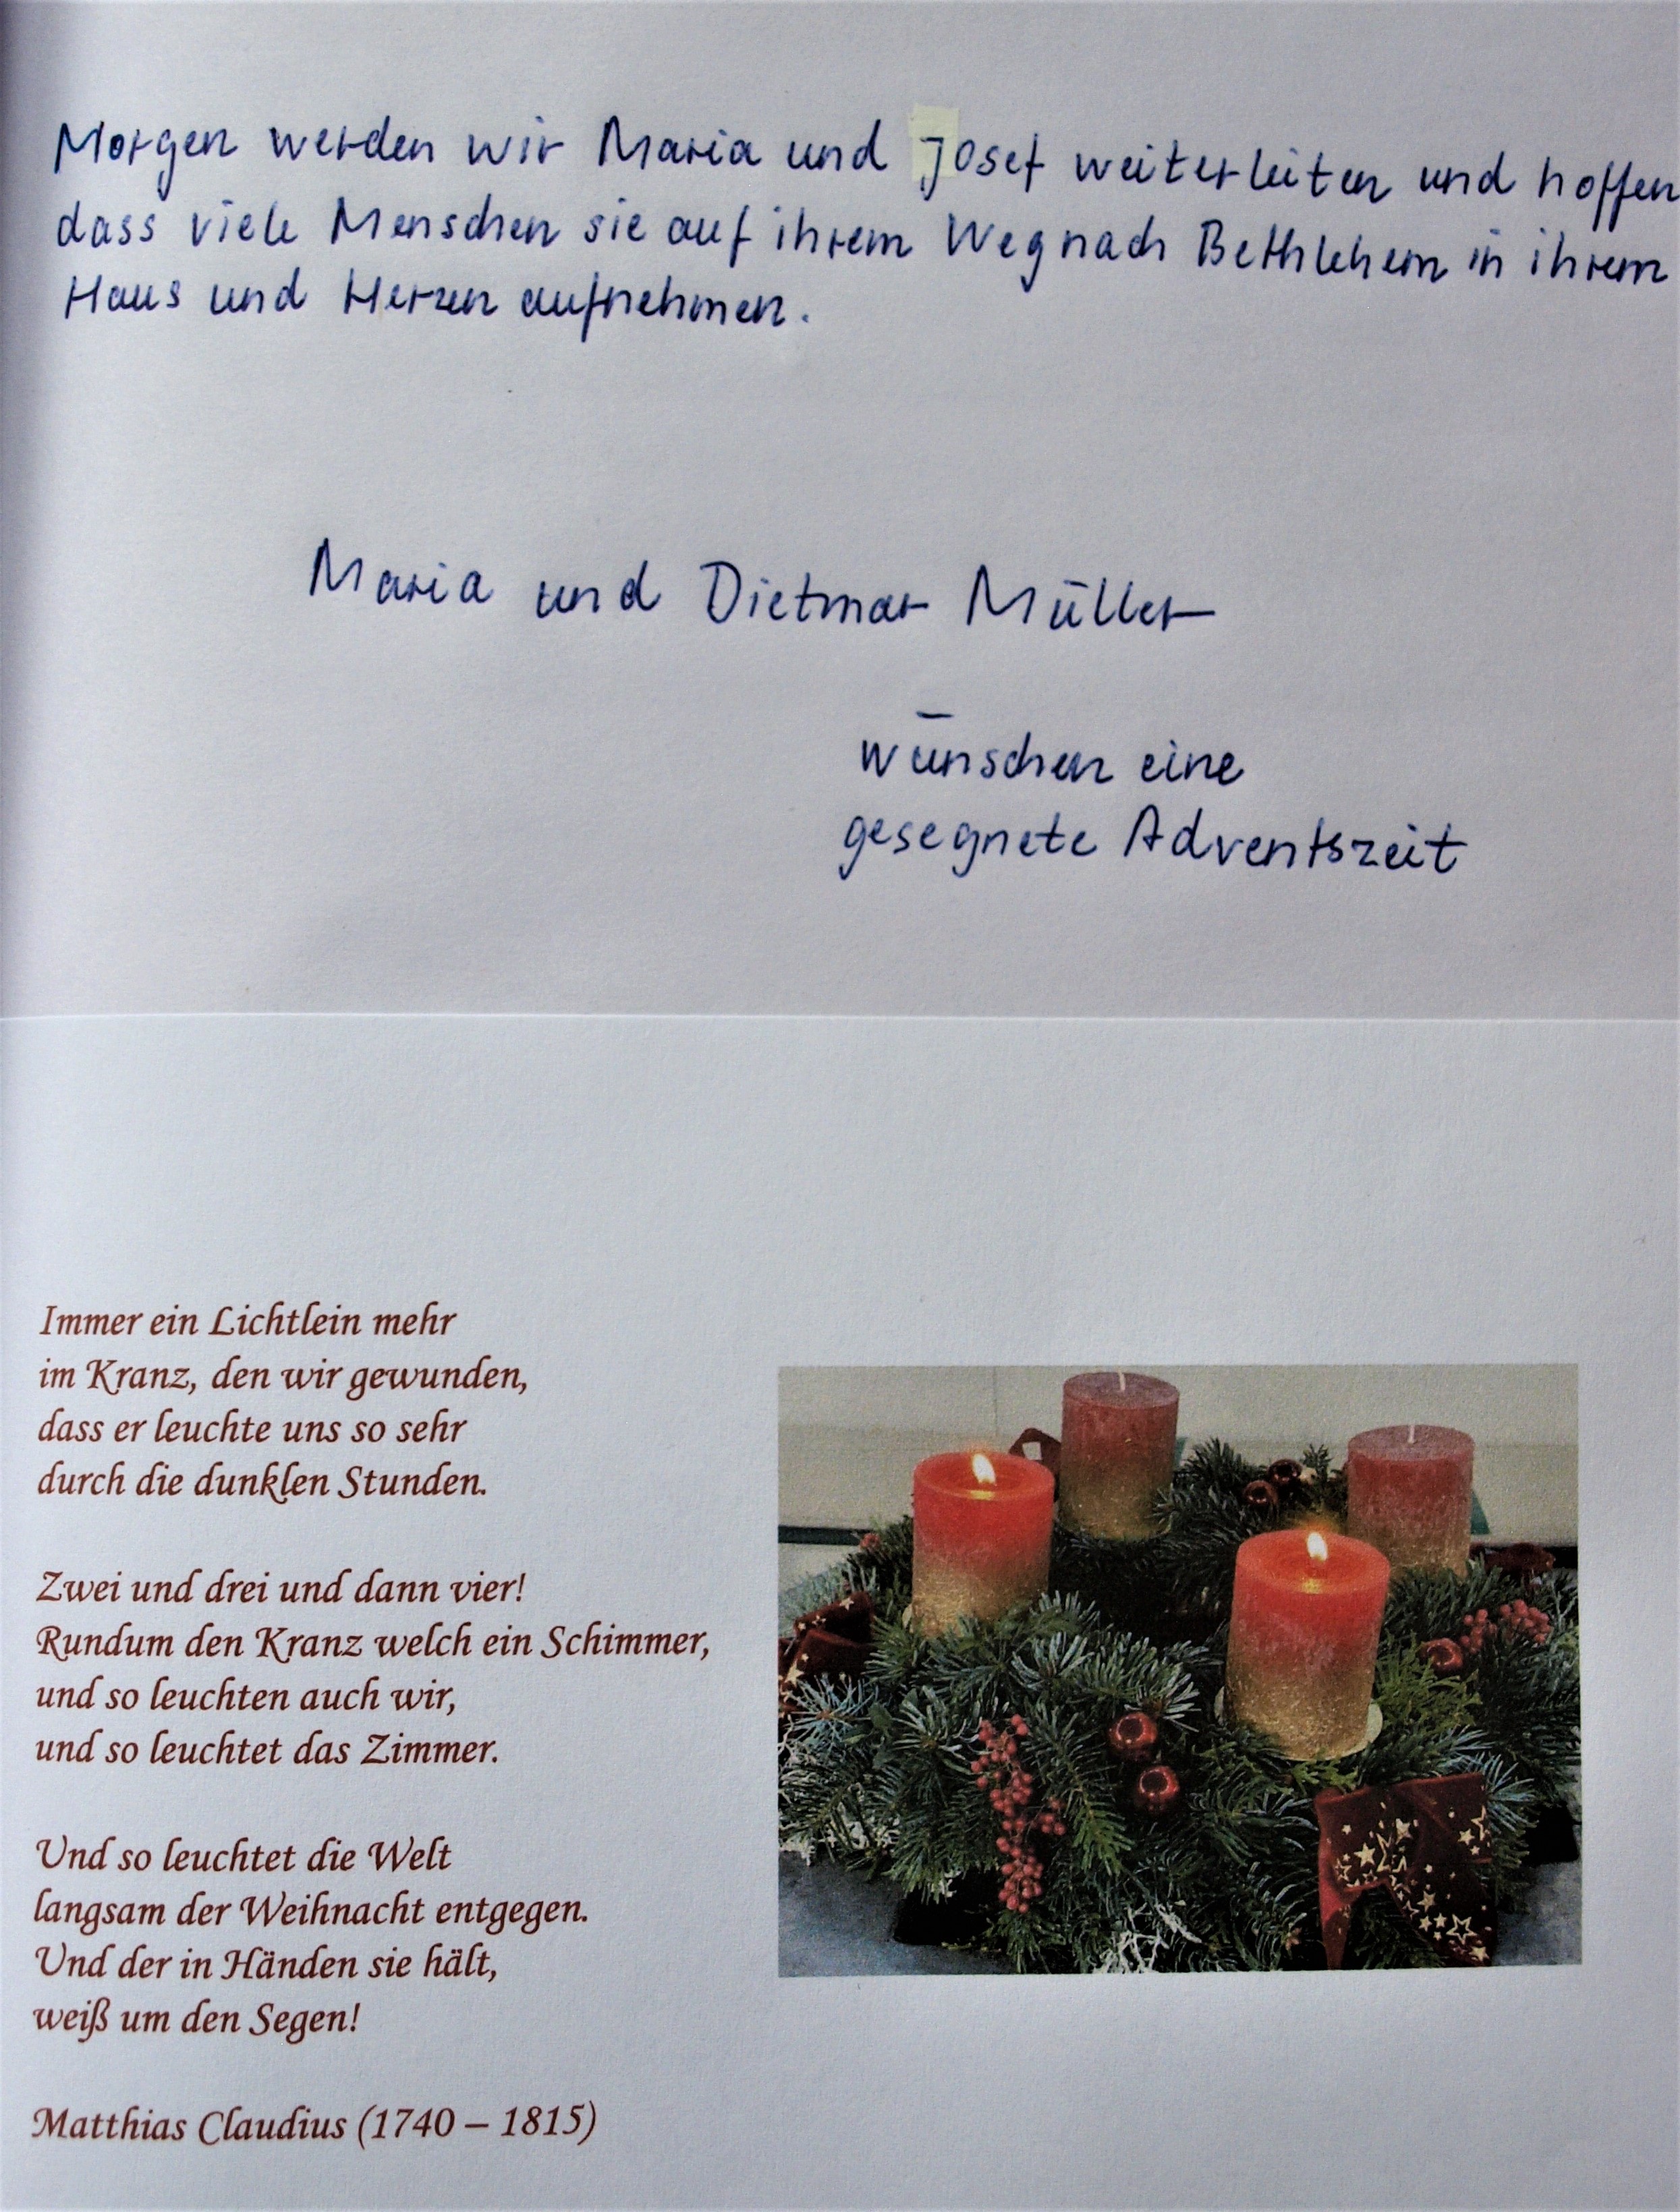 Morgen werden wir Maria und Josef weiterleiten und hoffen
dass viele Menschen sie auf ihrem Weg nach Bethlehem in ihrem
Haus und Herzen aufnehmen.
Maria und Dietmar Müller
wünschen eine
gesegnete Adventszeit
Immer ein Lichtlein mehr
im Kranz, den wir gewunden,
dass er leuchte uns so sehr
durch die dunklen Stunden.
Zwei und drei und dann vier!
Rundum den Kranz welch ein Schimmer,
und so leuchten auch wir,
und so leuchtet das Zimmer.
Und so leuchtet die Welt
langsam der Weihnacht entgegen.
Und der in Händen sie hält,
weiß um den Segen!
Matthias Claudius (1740 – 1815)